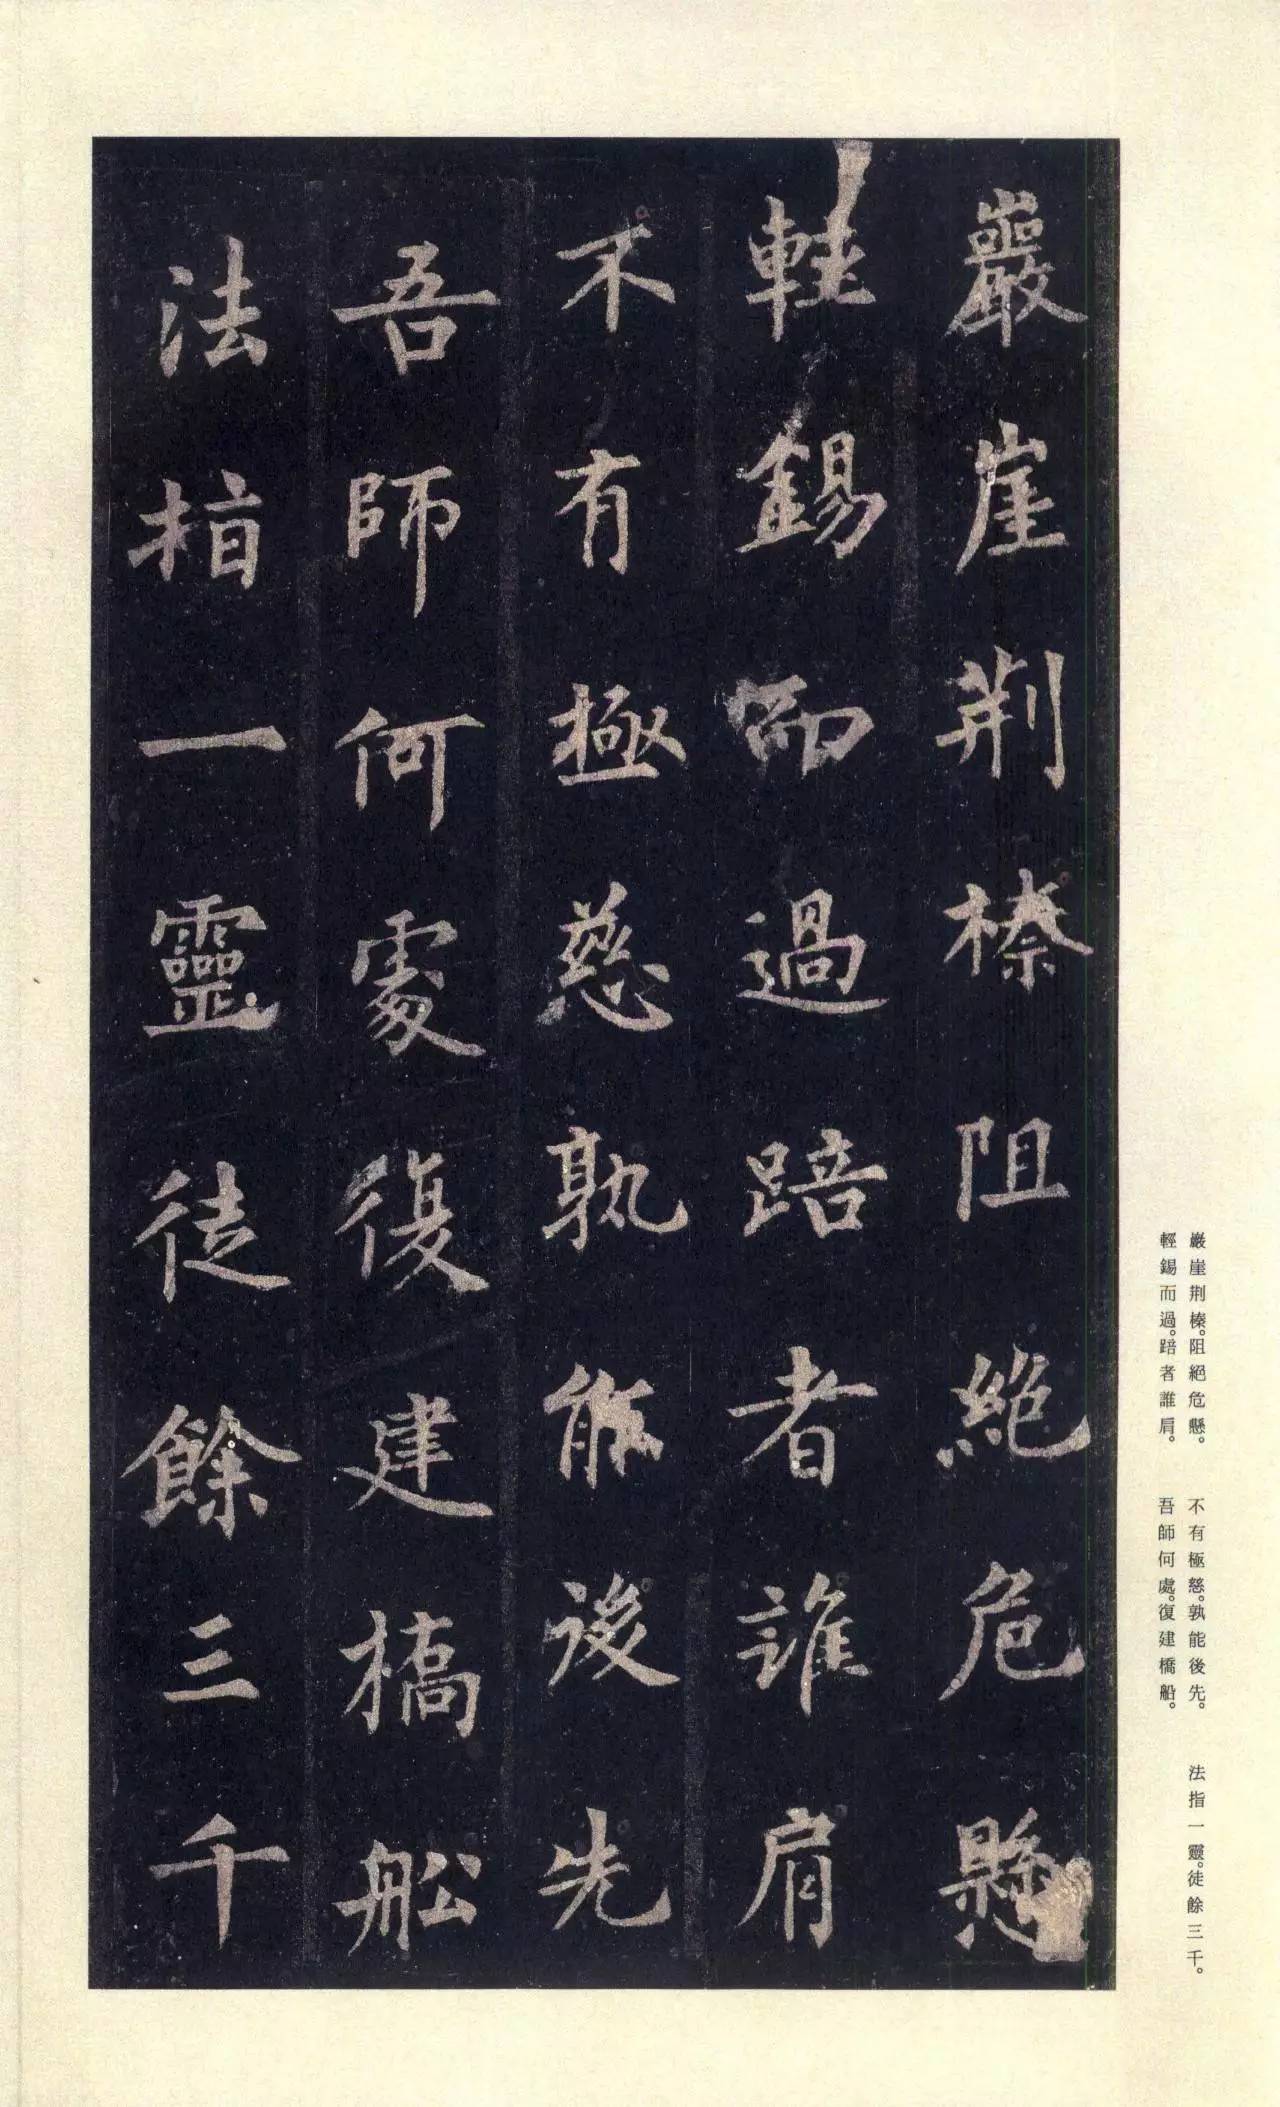 巖崖荆榛阻絶危懸
輕錫而過踣者誰肩
不有極慈孰能後先
吾師何處復建橋船
法指一靈徒餘三千
巖崖荆榛。阻絕危懸。
輕錫而過。踣者誰肩。
不有極慈。孰能後先。
吾師何處。復建橋船。
法指一靈。徒餘三千。